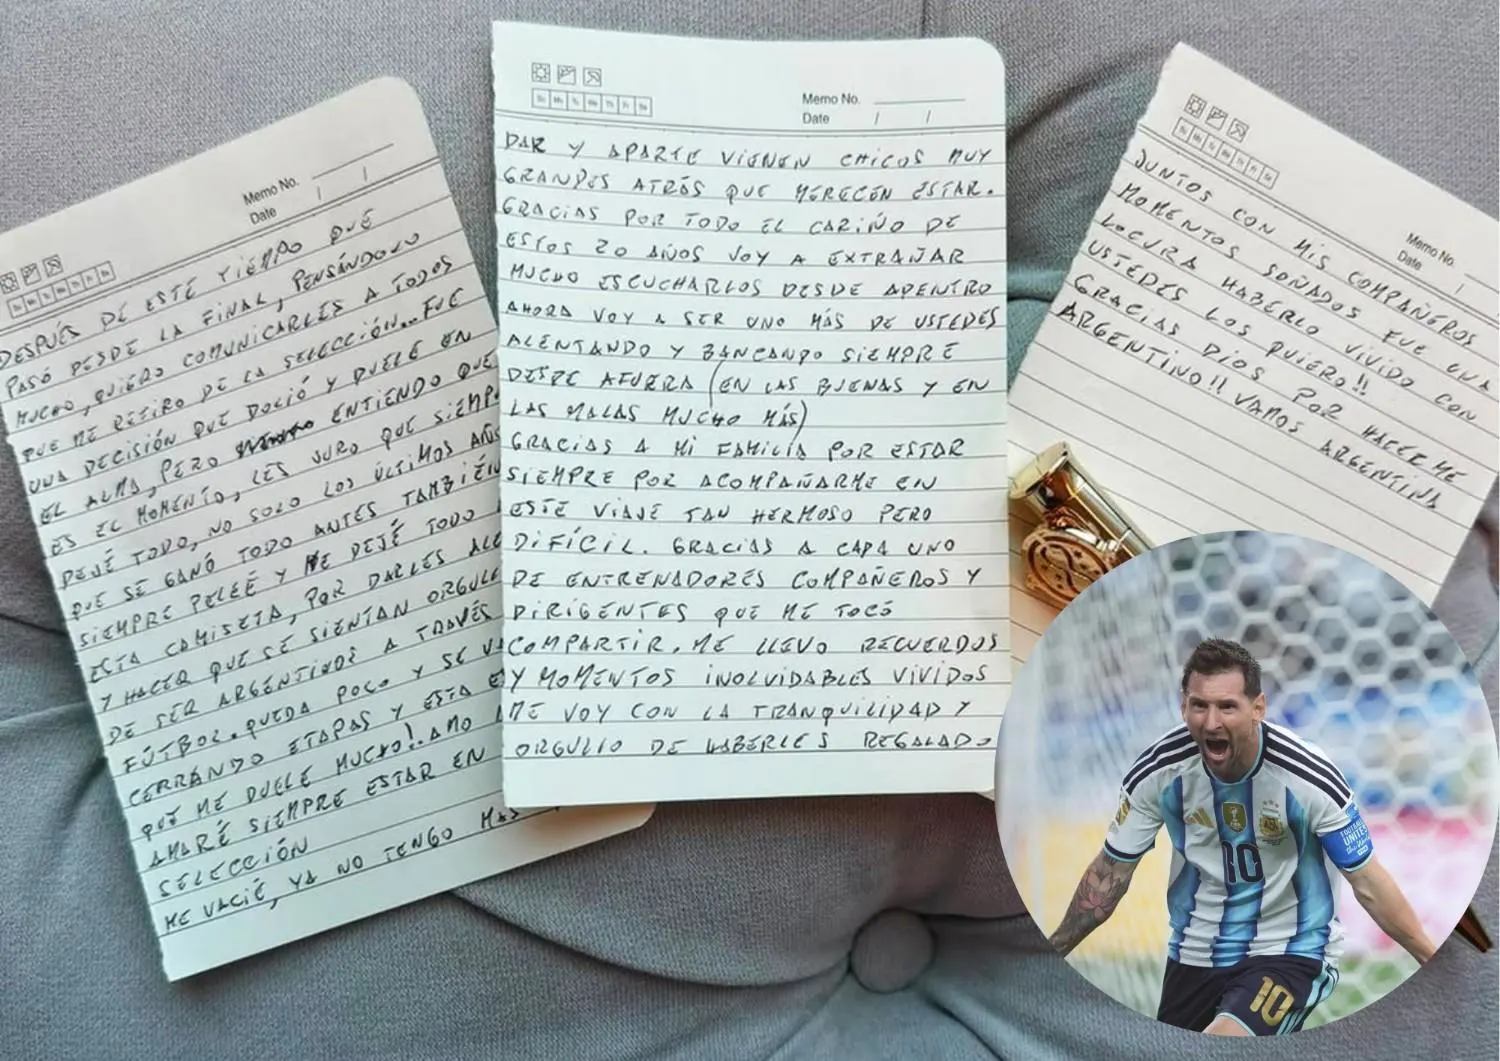 Memo No.
Date / /
DESPUÉS DE ESTE TIEMPO QUE
PASÓ DESDE LA FINAL, PENSÁNDOLO
MUCHO, QUIERO COMUNICARLES A TODOS
QUE ME RETIRO DE LA SELECCIÓN... FUE
UNA DECISIÓN QUE DOLIÓ Y DUELE EN
EL ALMA, PERO ENTIENDO QUE
ES EL MOMENTO, LES JURO QUE SIEMPR
DEJÉ TODO, NO SOLO LOS ÚLTIMOS AÑOS
QUE SE GANÓ TODO ANTES TAMBIÉN
SIEMPRE PELEÉ Y ME DEJÉ TODO
ESTA CAMISETA, POR DARLES ALE
Y HACER QUE SE SIENTAN ORGULL
DE SER ARGENTINOS A TRAVÉS
FÚTBOL. QUEDA POCO Y SE VA
CERRÁNDO ETAPAS Y ESTA E
QUE ME DUELE MUCHO!. AMO
AMARÉ SIEMPRE ESTAR EN
SELECCIÓN
ME VACIÉ, YA NO TENGO MAS
Su Mo Tu We Th Fr Sa
Memo No.
Date / /
DAR Y APARTE VIENEN CHICOS MUY
GRANDES ATRÁS QUE MERECEN ESTAR.
GRACIAS POR TODO EL CARIÑO DE
ESTOS 20 AÑOS VOY A EXTRAÑAR
MUCHO ESCUCHARLOS DESDE ADENTRO
AHORA VOY A SER UNO MÁS DE USTEDES
ALENTANDO Y BANCANDO SIEMPRE
DESDE AFUERA (EN LAS BUENAS Y EN
LAS MALAS MUCHO MÁS)
GRACIAS A MI FAMILIA POR ESTAR
SIEMPRE POR ACOMPAÑARME EN
ESTE VIAJE TAN HERMOSO PERO
DIFÍCIL. GRACIAS A CADA UNO
DE ENTRENADORES COMPAÑEROS Y
DIRIGENTES QUE ME TOCÓ
COMPARTIR. ME LLEVO RECUERDOS
Y MOMENTOS INOLVIDABLES VIVIDOS
ME VOY CON LA TRANQUILIDAD Y
ORGULLO DE HABERLES REGALADO
Su Mo Tu We Th Fr Sa
Memo No.
Date /
JUNTOS CON MIS COMPAÑEROS
MOMENTOS SOÑADOS FUE UNA
LOCURA HABERLO VIVIDO CON
USTEDES LOS QUIERO!!
GRACIAS DIOS POR HACERME
ARGENTINO!! VAMOS ARGENTINA
10
FOOTBALL
UNITES
10